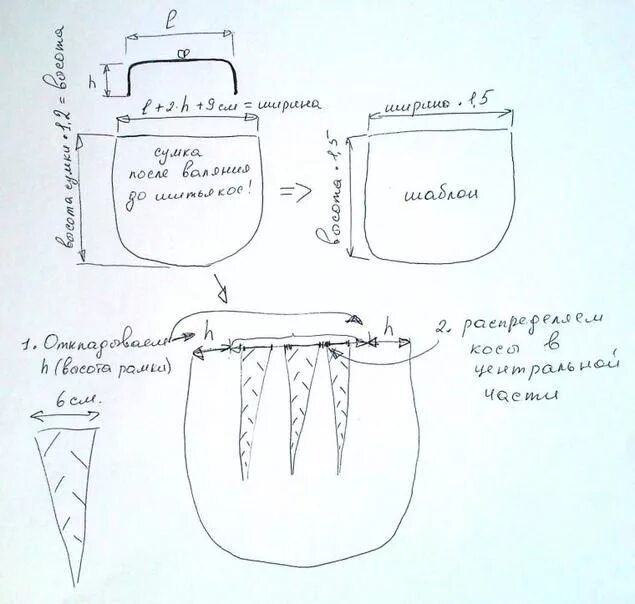 l
h
l + 2·h + 9 см = ширина
высота сумки · 1,2 = высота
сумка
после валяния
до шитья кос!
=>
ширина · 1.5
высота · 1.5
шаблон
1. Откладываем
h (высота рамки)
h
h
2. распределяем
косы в
центральной
части
6 см.